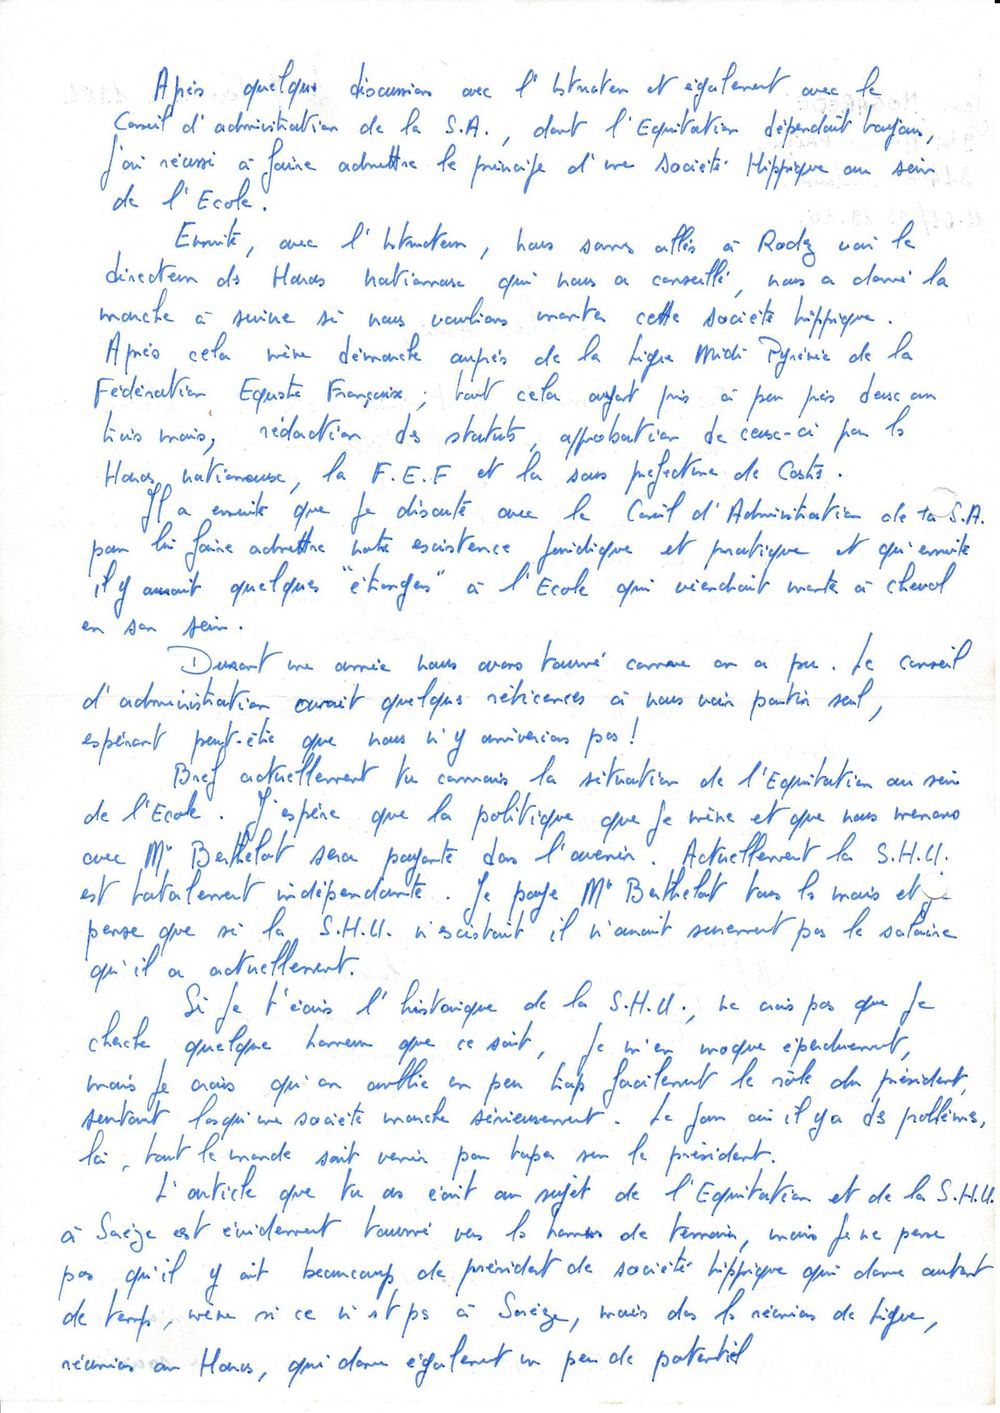 Après quelques discussions avec l'Instructeur et également avec le
Conseil d'administration de la S.A., dont l'Equitation dépendait toujours,
j'ai réussi à faire admettre le principe d'une société Hippique au sein
de l'Ecole.
Ensuite, avec l'Instructeur, nous sommes allés à Rodez voir le
directeur des Haras nationaux qui nous a conseillé, nous a donné la
marche à suivre si nous voulions monter cette société hippique.
Après cela même démarche auprès de la Ligue Midi Pyrénée de la
Fédération Equestre Française ; tout cela ayant pris à peu près deux ou
trois mois, rédaction des statuts, approbation de ceux-ci par les
Haras nationaux, la F.E.F et la sous prefecture de Castres.
Il a ensuite que je discute avec le Conseil d'Administration de ta S.A.
pour lui faire admettre notre existence juridique et pratique et qu'ensuite
il y aurait quelques "étrangers" à l'Ecole qui viendrait monter à cheval
en son sein.
Durant une année nous avons tourné comme on a pu. Le conseil
d'administration avait quelques réticences à nous voir partir seul,
espérant peut-être que nous n'y arriverions pas !
Bref actuellement tu connais la situation de l'Equitation au sein
de l'Ecole. J'espère que la politique que je mène et que nous menons
avec Mr Berthelot sera payante dans l'avenir. Actuellement la S.H.U.
est totalement indépendante. Je paye Mr Berthelot tous les mois et je
pense que si la S.H.U. n'existait il n'aurait surement pas le salaire
qu'il a actuellement.
Si je t'écris l'historique de la S.H.U., ne crois pas que je
cherche quelque honneur que ce soit, je m'en moque éperduement,
mais je crois qu'on oublie un peu trop facilement le rôle du président,
surtout lorsqu'une société marche sérieusement. Le jour où il y a des problèmes,
là, tout le monde sait venir pour taper sur le président.
L'article que tu as écrit au sujet de l'Equitation et de la S.H.U.
à Sorèze est évidemment tourné vers les hommes de terrain, mais je ne pense
pas qu'il y ait beaucoup de président de société hippique qui donne autant
de temps, même si ce n'est pas à Sorèze, mais dans les réunions de Ligue,
réunions au Haras, qui donne également un peu de potentiel